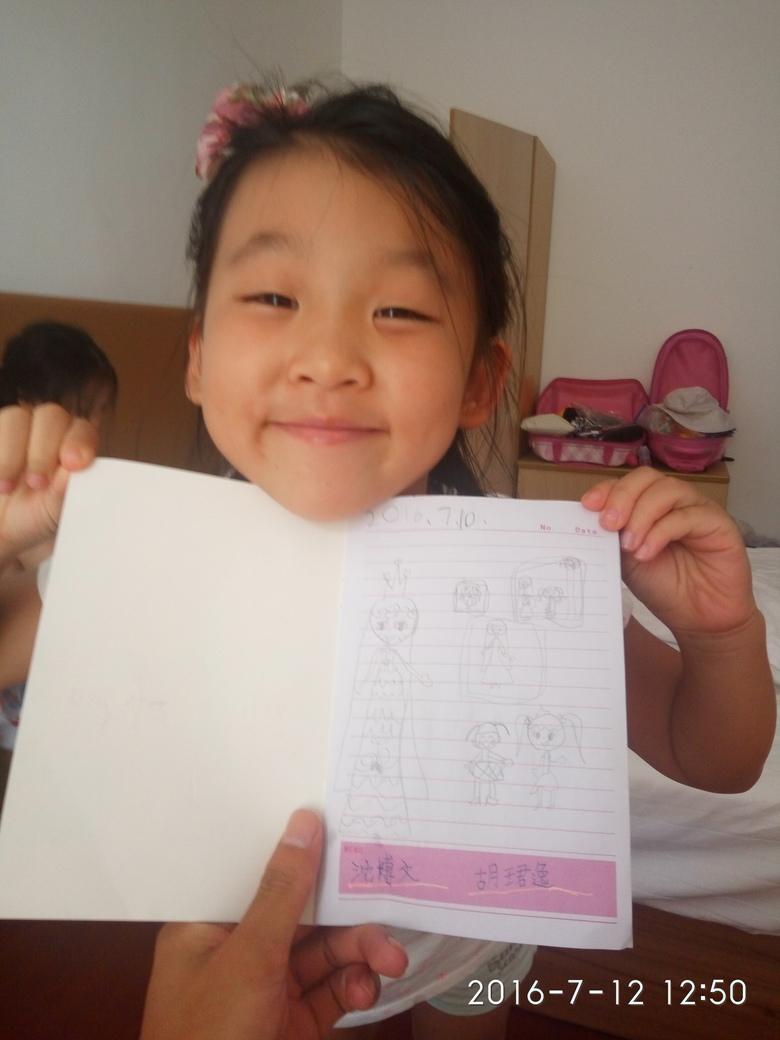 2016.7.10.
No.    Date
沈博文    胡珺逸
2016-7-12 12:50